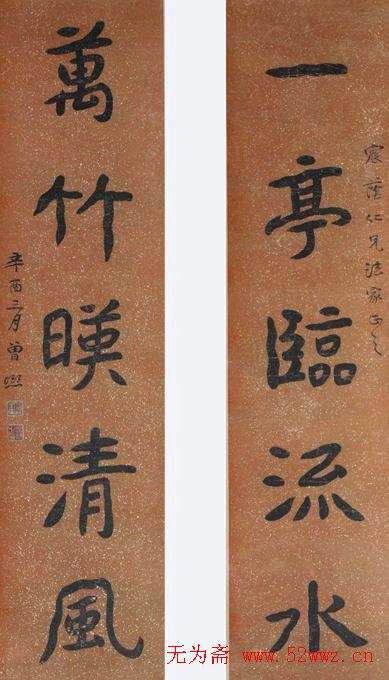 一亭臨流水
宸蔭仁兄法家正之
萬竹暎清風
辛酉三月曾熙
无为斋 www.52wwz.cn